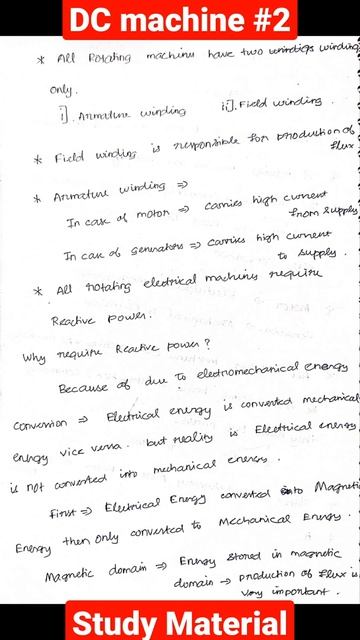 DC machine #2
* All Rotating machines have two winding
only.
i]. Armature winding ii]. Field winding.
* Field winding is responsible for production of
flux
* Armature winding ⇒
In case of motor ⇒ carries high current
from supply
In case of generators ⇒ carries high current
to supply.
* All rotating electrical machines require
Reactive power.
Why require Reactive power?
Because of due to electromechanical energy
conversion ⇒ Electrical energy is converted mechanical
energy vice versa. but reality is Electrical energy
is not converted into mechanical energy.
First ⇒ Electrical Energy converted into Magnetic
Energy then only converted to Mechanical Energy.
Magnetic domain ⇒ Energy stored in magnetic
domain → production of flux is
very important.
Study Material